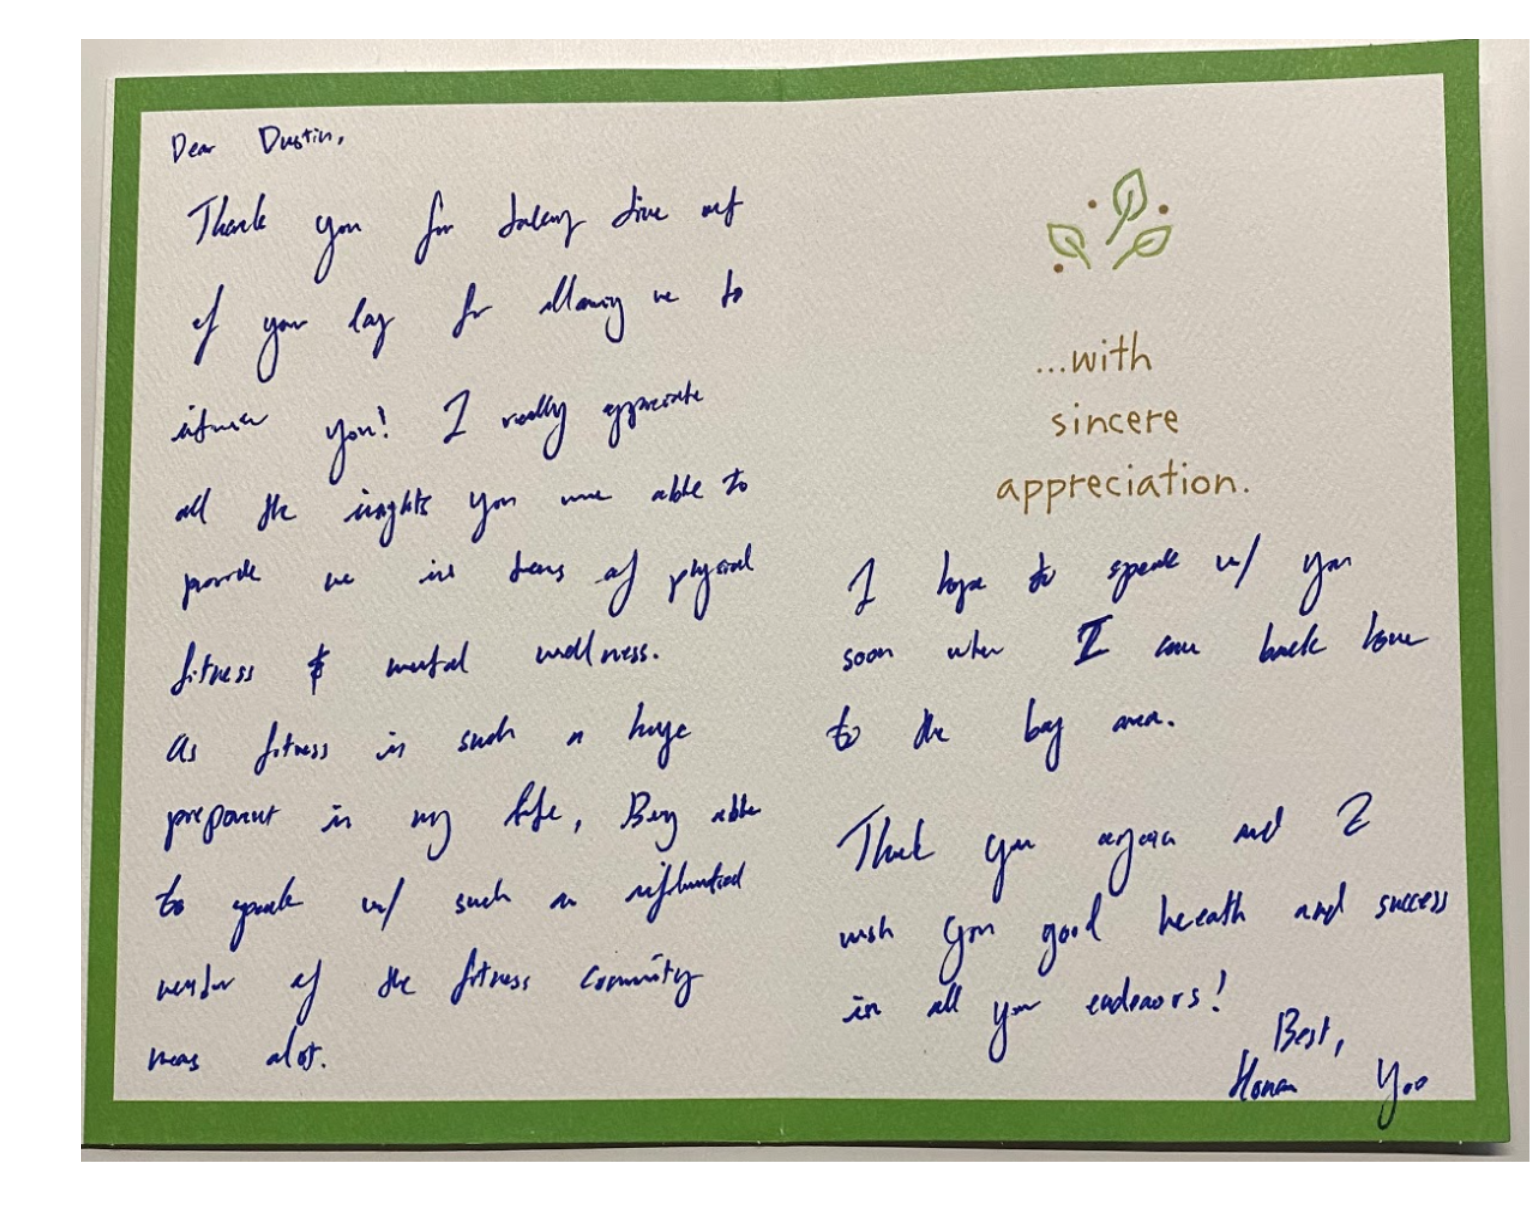 Dear Dustin,
Thank you for taking time out
of your day for allowing me to
interview you! I really appreciate
all the insights you were able to
provide me in terms of physical
fitness & mental wellness.
As fitness is such a huge
in my life, Being able
to speak w/ such an influential
member of the fitness community
means alot.
...with
sincere
appreciation.
I hope to speak w/ you
soon when I come back home
to the bay area.
Thank you again and I
wish you good heath and success
in all your endeavors!
Best,
Yoo